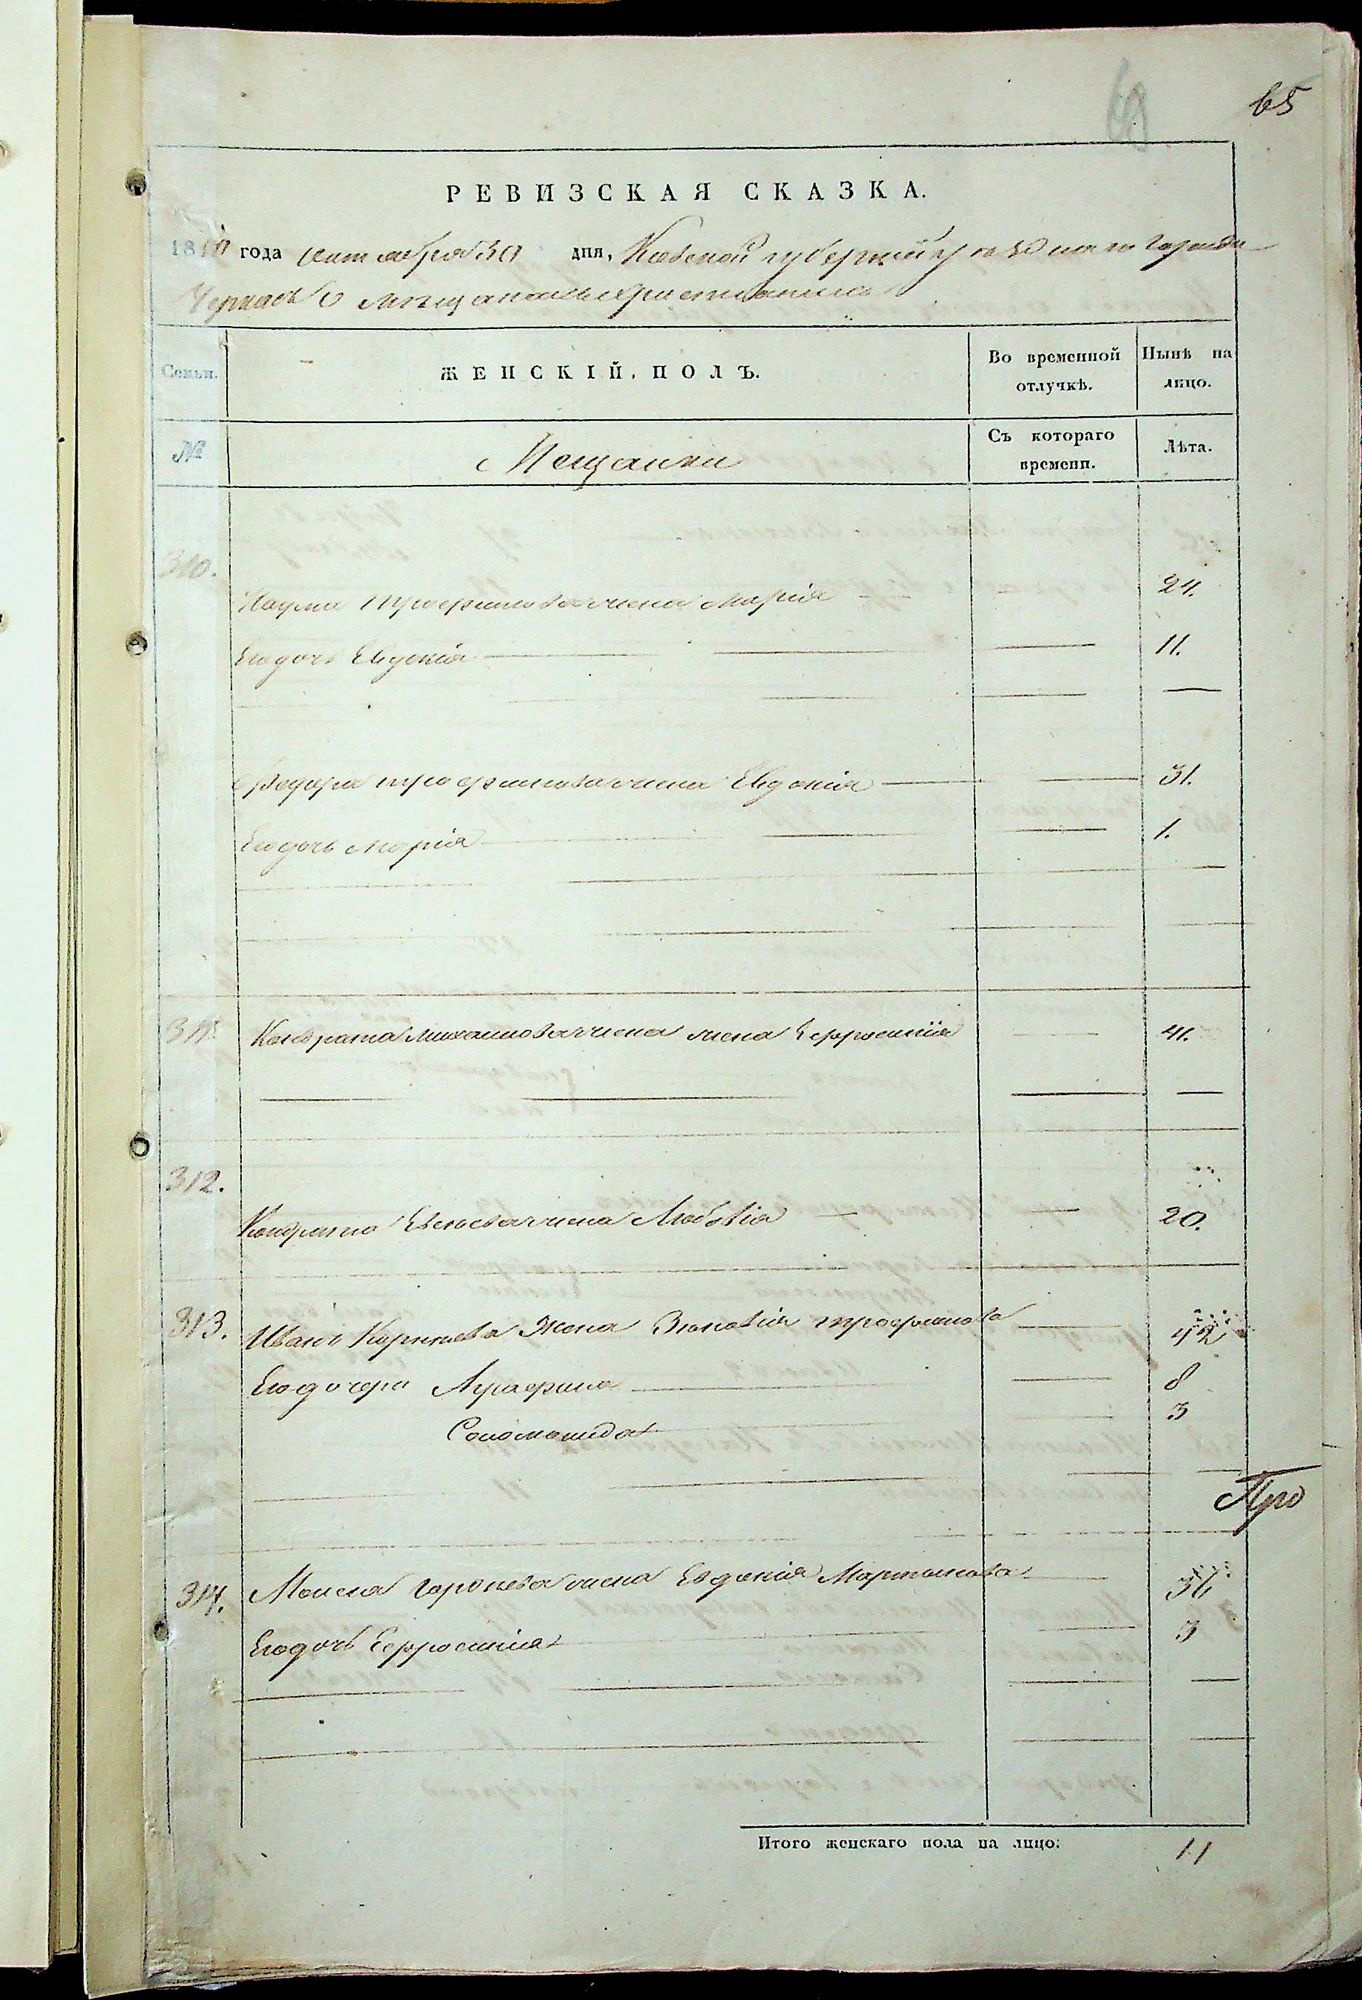 65
РЕВИЗСКАЯ СКАЗКА.
1850 года сентября 30 дня, Киевской губернии города
Черкасъ о мѣщанахъ христианахъ
Семьи.
ЖЕНСКІЙ ПОЛЪ.
Во временной отлучкѣ.
Нынѣ на лицо.
№
Мещанки
Съ котораго времени.
Лѣта.
310.
Наума Трофимова жена Марія 24.
Его дочь Евдокія 11.
Федора Трофимова жена Евдокія 31.
Его дочь Марія 1.
311. Кондрата Михайлова жена Ефросинія 41.
312.
Кондрата жена 20.
313. Ивана Корнѣева жена Зиновія Трофимова 42
Его дочери Агрефина 8
Соломонида 3
Про
314. Моисея жена Евдокія Мартынова 36
Его дочь Ефросинія 3
Итого женскаго пола на лицо: 11